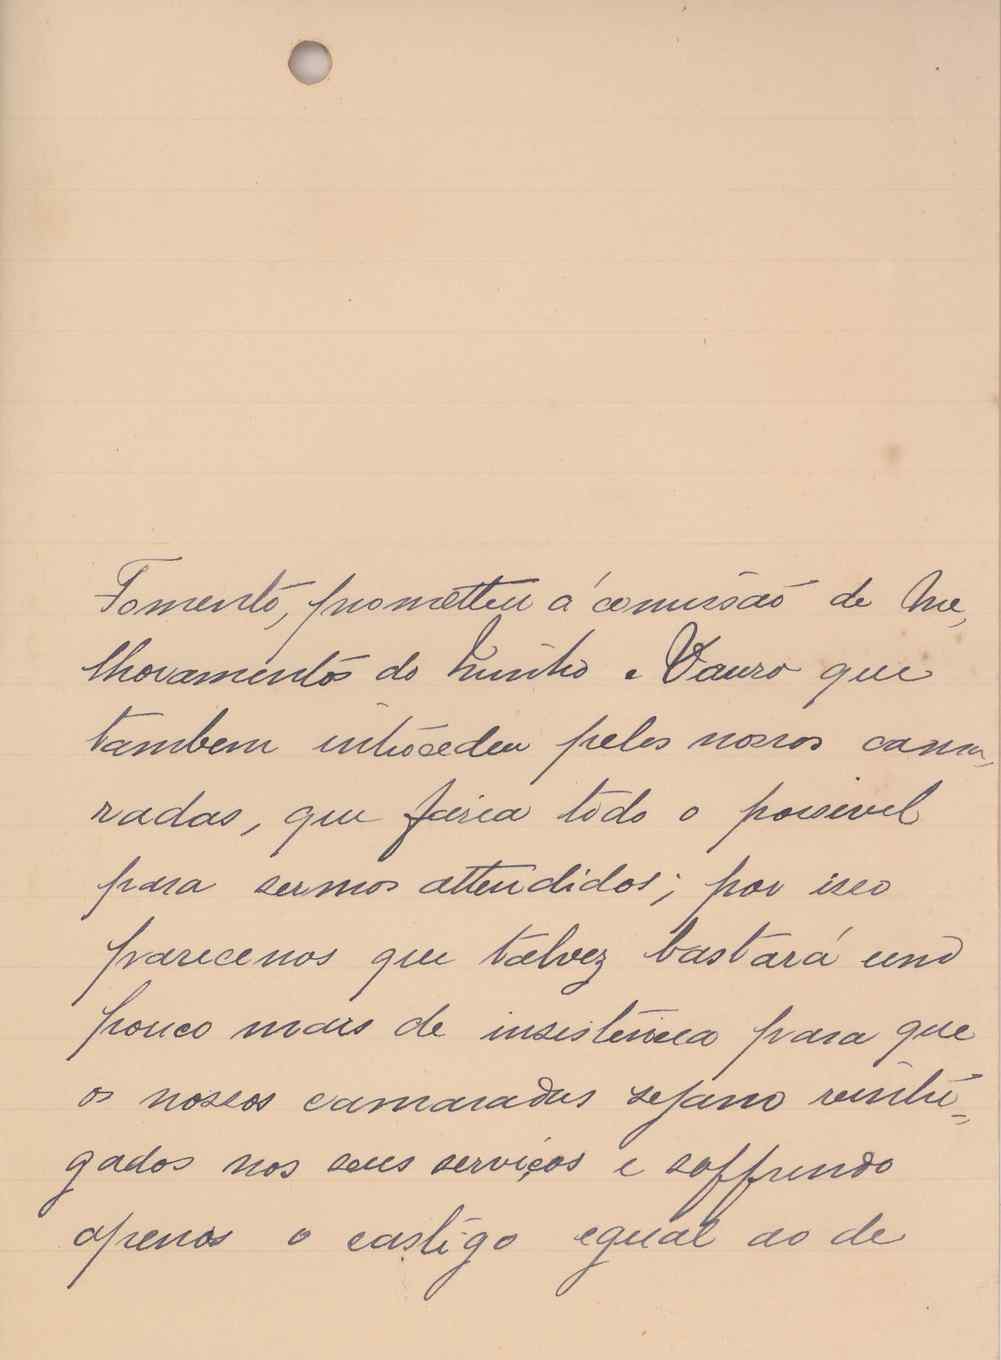 Fomento, prometteu á comissão de Me,
lhoramentos do Minho e Douro que
tambem intercedeu pelos nossos cama,
radas, que faria todo o possivel
para sermos attendidos; por isso
parecenos que talvez bastará um
pouco mais de insistencia para que
os nossos camaradas sejam reinte=
gados nos seus serviços e soffrendo
apenas o castigo egual ao de